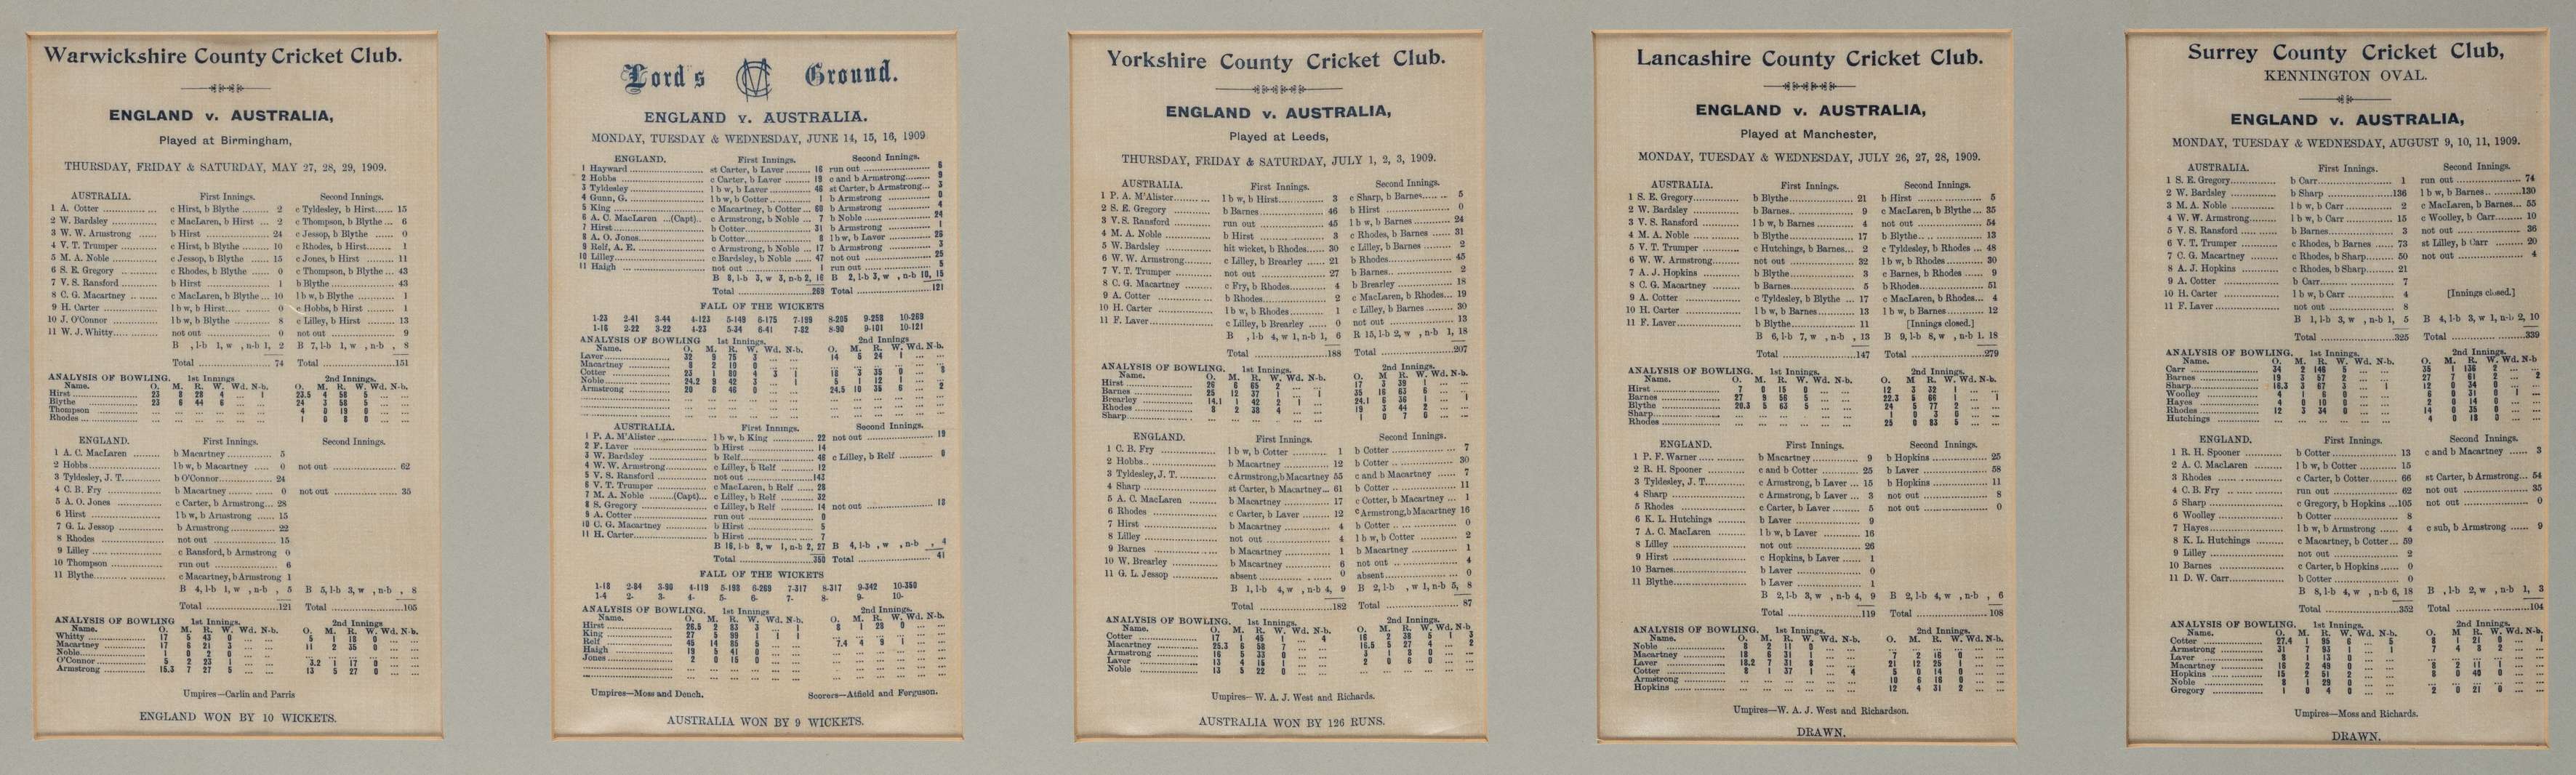 Warwickshire County Cricket Club.
ENGLAND v. AUSTRALIA,
Played at Birmingham,
THURSDAY, FRIDAY & SATURDAY, MAY 27, 28, 29, 1909.
AUSTRALIA. First Innings. Second Innings.
1 A. Cotter c Hirst, b Blythe 2 c Tyldesley, b Hirst 15
2 W. Bardsley c MacLaren, b Hirst 2 c Thompson, b Blythe 6
3 W. W. Armstrong b Hirst 24 c Jessop, b Blythe 0
4 V. T. Trumper c Hirst, b Blythe 10 c Rhodes, b Hirst 1
5 M. A. Noble c Jessop, b Blythe 15 c Jones, b Hirst 11
6 S. E. Gregory c Rhodes, b Blythe 0 c Thompson, b Blythe 43
7 V. S. Ransford b Hirst 1 b Blythe 43
8 C. G. Macartney c MacLaren, b Blythe 10 l b w, b Blythe 1
9 H. Carter l b w, b Hirst 0 c Hobbs, b Hirst 1
10 J. O'Connor l b w, b Blythe 8 c Lilley, b Hirst 13
11 W. J. Whitty not out 0 not out 9
B , l-b 1, w , n-b 1, 2 B 7, l-b 1, w , n-b , 8
Total 74 Total 151
ANALYSIS OF BOWLING 1st Innings 2nd Innings.
Name. O. M. R. W. Wd. N-b. O. M. R. W. Wd. N-b.
Hirst 23 8 28 4 ... 1 23.5 4 58 5
Blythe 23 6 44 6 24 3 58 5
Thompson 4 0 19 0
Rhodes 1 0 8 0
ENGLAND. First Innings. Second Innings.
1 A. C. MacLaren b Macartney 5
2 Hobbs l b w, b Macartney 0 not out 62
3 Tyldesley, J. T. b O'Connor 24
4 C. B. Fry b Macartney 0 not out 35
5 A. O. Jones c Carter, b Armstrong 28
6 Hirst l b w, b Armstrong 15
7 G. L. Jessop b Armstrong 22
8 Rhodes not out 15
9 Lilley c Ransford, b Armstrong 0
10 Thompson run out 6
11 Blythe c Macartney, b Armstrong 1
B 4, l-b 1, w , n-b , 5 B 5, l-b 3, w , n-b , 8
Total 121 Total 105
ANALYSIS OF BOWLING 1st Innings 2nd Innings.
Name. O. M. R. W. Wd. N-b. O. M. R. W. Wd. N-b.
Whitty 17 5 43 0 5 1 18 0
Macartney 17 6 21 3 11 2 35 0
Noble 1 0 2 0
O'Connor 5 2 23 1 3.2 1 17 0
Armstrong 15.3 7 27 5 13 5 27 0
Umpires—Carlin and Parris
ENGLAND WON BY 10 WICKETS.
Lord's MCC Ground.
ENGLAND v. AUSTRALIA.
MONDAY, TUESDAY & WEDNESDAY, JUNE 14, 15, 16, 1909
ENGLAND. First Innings. Second Innings.
1 Hayward st Carter, b Laver 16 run out 6
2 Hobbs c Carter, b Laver 19 c and b Armstrong 9
3 Tyldesley l b w, b Laver 46 st Carter, b Armstrong 3
4 Gunn, G. l b w, b Cotter 1 b Armstrong 0
5 King c Macartney, b Cotter 60 b Armstrong 4
6 A. C. MacLaren (Capt). c Armstrong, b Noble 7 b Noble 24
7 Hirst b Cotter 31 b Armstrong 1
8 A. O. Jones b Cotter 8 l b w, b Laver 26
9 Relf, A. E. c Armstrong, b Noble 17 b Armstrong 3
10 Lilley c Bardsley, b Noble 47 not out 25
11 Haigh not out 1 run out 5
B 8, l-b 3, w 3, n-b 2, 16 B 2, l-b 3, w , n-b 10, 15
Total 269 Total 121
FALL OF THE WICKETS
1-23 2-41 3-44 4-123 5-149 6-175 7-199 8-205 9-258 10-269
1-16 2-22 3-22 4-23 5-34 6-41 7-82 8-90 9-101 10-121
ANALYSIS OF BOWLING 1st Innings 2nd Innings
Name. O. M. R. W. Wd. N-b. O. M. R. W. Wd. N-b.
Laver 32 9 75 3 14 5 24 1
Macartney 8 2 10 0
Cotter 23 1 80 4 3 1 18 3 35 0
Noble 24.2 9 42 3 ... 1 5 1 12 1
Armstrong 20 6 46 0 24.5 10 35 6 ... 2
AUSTRALIA. First Innings. Second Innings.
1 P. A. M'Alister l b w, b King 22 not out 19
2 F. Laver b Hirst 14
3 W. Bardsley b Relf 46 c Lilley, b Relf 0
4 W. W. Armstrong c Lilley, b Relf 12
5 V. S. Ransford not out 143
6 V. T. Trumper c MacLaren, b Relf 28
7 M. A. Noble (Capt) c Lilley, b Relf 32
8 S. Gregory c Lilley, b Relf 14 not out 18
9 A. Cotter run out 0
10 C. G. Macartney b Hirst 5
11 H. Carter b Hirst 7
B 16, l-b 8, w 1, n-b 2, 27 B 4, l-b , w , n-b , 4
Total 350 Total 41
FALL OF THE WICKETS
1-18 2-84 3-90 4-119 5-198 6-269 7-317 8-317 9-342 10-350
1-4 2- 3- 4- 5- 6- 7- 8- 9- 10-
ANALYSIS OF BOWLING. 1st Innings 2nd Innings.
Name. O. M. R. W. Wd. N-b. O. M. R. W. Wd. N-b.
Hirst 26.5 2 83 3 ... 1 8 1 28 0
King 27 5 99 1 1 1
Relf 45 14 85 5 7.4 4 9 1
Haigh 19 5 41 0
Jones 2 0 15 0
Umpires—Moss and Dench. Scorers—Atfield and Ferguson.
AUSTRALIA WON BY 9 WICKETS.
Yorkshire County Cricket Club.
ENGLAND v. AUSTRALIA,
Played at Leeds,
THURSDAY, FRIDAY & SATURDAY, JULY 1, 2, 3, 1909.
AUSTRALIA. First Innings. Second Innings.
1 P. A. M'Alister l b w, b Hirst 3 c Sharp, b Barnes 5
2 S. E. Gregory b Barnes 46 b Hirst 0
3 V. S. Ransford run out 45 l b w, b Barnes 24
4 M. A. Noble b Hirst 3 c Rhodes, b Barnes 31
5 W. Bardsley hit wicket, b Rhodes 30 c Lilley, b Barnes 2
6 W. W. Armstrong c Lilley, b Brearley 21 b Rhodes 45
7 V. T. Trumper not out 27 b Barnes 2
8 C. G. Macartney c Fry, b Rhodes 4 b Brearley 18
9 A. Cotter b Rhodes 2 c MacLaren, b Rhodes 19
10 H. Carter l b w, b Rhodes 1 c Lilley, b Barnes 30
11 F. Laver c Lilley, b Brearley 0 not out 13
B , l-b 4, w 1, n-b 1, 6 B 15, l-b 2, w , n-b 1, 18
Total 188 Total 207
ANALYSIS OF BOWLING. 1st Innings 2nd Innings.
Name. O. M. R. W. Wd. N-b. O. M. R. W. Wd. N-b.
Hirst 26 6 65 2 17 3 39 1
Barnes 25 12 37 1 ... 1 35 16 63 6
Brearley 14.1 1 42 2 1 24.1 6 36 1 ... 1
Rhodes 8 2 38 4 19 3 44 2
Sharp 1 0 7 0
ENGLAND. First Innings. Second Innings.
1 C. B. Fry l b w, b Cotter 1 b Cotter 7
2 Hobbs b Macartney 12 b Cotter 30
3 Tyldesley, J. T. c Armstrong, b Macartney 55 c and b Macartney 7
4 Sharp st Carter, b Macartney 61 b Cotter 11
5 A. C. MacLaren b Macartney 17 c Cotter, b Macartney 1
6 Rhodes c Carter, b Laver 12 c Armstrong, b Macartney 16
7 Hirst b Macartney 4 b Cotter 0
8 Lilley not out 4 l b w, b Cotter 2
9 Barnes b Macartney 1 b Macartney 1
10 W. Brearley b Macartney 6 not out 4
11 G. L. Jessop absent 0 absent 0
B 1, l-b 4, w , n-b 4, 9 B 2, l-b , w 1, n-b 5, 8
Total 182 Total 87
ANALYSIS OF BOWLING. 1st Innings 2nd Innings.
Name. O. M. R. W. Wd. N-b. O. M. R. W. Wd. N-b.
Cotter 17 1 45 1 ... 4 16 2 38 5 1 3
Macartney 25.3 6 58 7 16.5 5 27 4 ... 2
Armstrong 16 5 33 0 3 1 8 0
Laver 13 4 15 1 2 0 6 0
Noble 13 5 22 0
Umpires—W. A. J. West and Richards.
AUSTRALIA WON BY 126 RUNS.
Lancashire County Cricket Club.
ENGLAND v. AUSTRALIA,
Played at Manchester,
MONDAY, TUESDAY & WEDNESDAY, JULY 26, 27, 28, 1909.
AUSTRALIA. First Innings. Second Innings.
1 S. E. Gregory b Blythe 21 b Hirst 5
2 W. Bardsley b Barnes 9 c MacLaren, b Blythe 35
3 V. S. Ransford l b w, b Barnes 4 not out 54
4 M. A. Noble b Blythe 17 b Blythe 13
5 V. T. Trumper c Hutchings, b Barnes 2 c Tyldesley, b Rhodes 48
6 W. W. Armstrong not out 32 l b w, b Rhodes 30
7 A. J. Hopkins b Blythe 3 c Barnes, b Rhodes 9
8 C. G. Macartney b Barnes 5 b Rhodes 51
9 A. Cotter c Tyldesley, b Blythe 17 c MacLaren, b Rhodes 4
10 H. Carter l b w, b Barnes 13 l b w, b Barnes 12
11 F. Laver b Blythe 11 [Innings closed.]
B 6, l-b 7, w , n-b , 13 B 9, l-b 8, w , n-b 1, 18
Total 147 Total 279
ANALYSIS OF BOWLING. 1st Innings 2nd Innings.
Name. O. M. R. W. Wd. N-b. O. M. R. W. Wd. N-b.
Hirst 7 0 15 0 12 3 32 1
Barnes 27 9 56 5 22.3 5 66 1 ... 1
Blythe 20.3 5 63 5 24 5 77 2
Sharp 1 0 3 0
Rhodes 25 0 83 5
ENGLAND. First Innings. Second Innings.
1 P. F. Warner b Macartney 9 b Hopkins 25
2 R. H. Spooner c and b Cotter 25 b Laver 58
3 Tyldesley, J. T. c Armstrong, b Laver 15 b Hopkins 11
4 Sharp c Armstrong, b Laver 3 not out 8
5 Rhodes c Carter, b Laver 5 not out 0
6 K. L. Hutchings b Laver 9
7 A. C. MacLaren l b w, b Laver 16
8 Lilley not out 26
9 Hirst c Hopkins, b Laver 1
10 Barnes b Laver 0
11 Blythe b Laver 1
B 2, l-b 3, w , n-b 4, 9 B 2, l-b 4, w , n-b , 6
Total 119 Total 108
ANALYSIS OF BOWLING. 1st Innings 2nd Innings.
Name. O. M. R. W. Wd. N-b. O. M. R. W. Wd. N-b.
Noble 8 2 11 0
Macartney 18 6 31 1 7 2 16 0
Laver 18.2 7 31 8 21 12 25 1
Cotter 8 1 37 1 ... 4 5 0 14 0
Armstrong 10 6 16 0
Hopkins 12 4 31 2
Umpires—W. A. J. West and Richardson.
DRAWN.
Surrey County Cricket Club,
KENNINGTON OVAL.
ENGLAND v. AUSTRALIA,
MONDAY, TUESDAY & WEDNESDAY, AUGUST 9, 10, 11, 1909.
AUSTRALIA. First Innings. Second Innings.
1 S. E. Gregory b Carr 1 run out 74
2 W. Bardsley b Sharp 136 l b w, b Barnes 130
3 M. A. Noble l b w, b Carr 2 c MacLaren, b Barnes 55
4 W. W. Armstrong l b w, b Carr 15 c Woolley, b Carr 10
5 V. S. Ransford b Barnes 3 not out 36
6 V. T. Trumper c Rhodes, b Barnes 73 st Lilley, b Carr 20
7 C. G. Macartney c Rhodes, b Sharp 50 not out 4
8 A. J. Hopkins c Rhodes, b Sharp 21
9 A. Cotter b Carr 7
10 H. Carter l b w, b Carr 4 [Innings closed.]
11 F. Laver not out 8
B 1, l-b 3, w , n-b 1, 5 B 4, l-b 3, w 1, n-b 2, 10
Total 325 Total 339
ANALYSIS OF BOWLING. 1st Innings 2nd Innings.
Name. O. M. R. W. Wd. N-b. O. M. R. W. Wd. N-b
Carr 34 2 146 5 35 1 136 2
Barnes 19 3 57 2 27 7 61 2 ... 2
Sharp 16.3 3 67 3 ... 1 12 0 34 0
Woolley 4 1 6 0 6 0 31 0 1
Hayes 4 0 10 0 2 0 14 0
Rhodes 12 3 34 0 14 0 35 0
Hutchings 4 0 18 0
ENGLAND. First Innings. Second Innings.
1 R. H. Spooner b Cotter 13 c and b Macartney 3
2 A. C. MacLaren l b w, b Cotter 15
3 Rhodes c Carter, b Cotter 66 st Carter, b Armstrong 54
4 C. B. Fry run out 62 not out 35
5 Sharp c Gregory, b Hopkins 105 not out 0
6 Woolley b Cotter 8
7 Hayes l b w, b Armstrong 4 c sub, b Armstrong 9
8 K. L. Hutchings c Macartney, b Cotter 59
9 Lilley not out 2
10 Barnes c Carter, b Hopkins 0
11 D. W. Carr b Cotter 0
B 8, l-b 4, w , n-b 6, 18 B , l-b 2, w , n-b 1, 3
Total 352 Total 104
ANALYSIS OF BOWLING. 1st Innings 2nd Innings.
Name. O. M. R. W. Wd. N-b. O. M. R. W. Wd. N-b.
Cotter 27.4 1 95 6 ... 5 8 1 21 0 ... 1
Armstrong 31 7 93 1 ... 1 7 4 8 2
Laver 8 1 13 0
Macartney 16 2 49 0 8 2 11 1
Hopkins 15 2 51 2 8 0 40 0
Noble 8 1 29 0
Gregory 1 0 4 0 2 0 21 0
Umpires—Moss and Richards.
DRAWN.